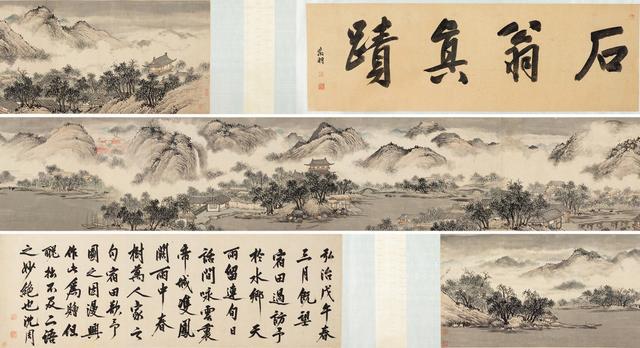 石翁眞蹟
弘治戊午春
三月既望
宿田過訪予
於水鄉天
雨留連旬日
話間咏雲裏
帝城雙鳳
闕雨中春
樹萬人家之
句宿田歎予
圖之因漫興
作此為贈但
醜拙不及二語
之妙絕也沈周